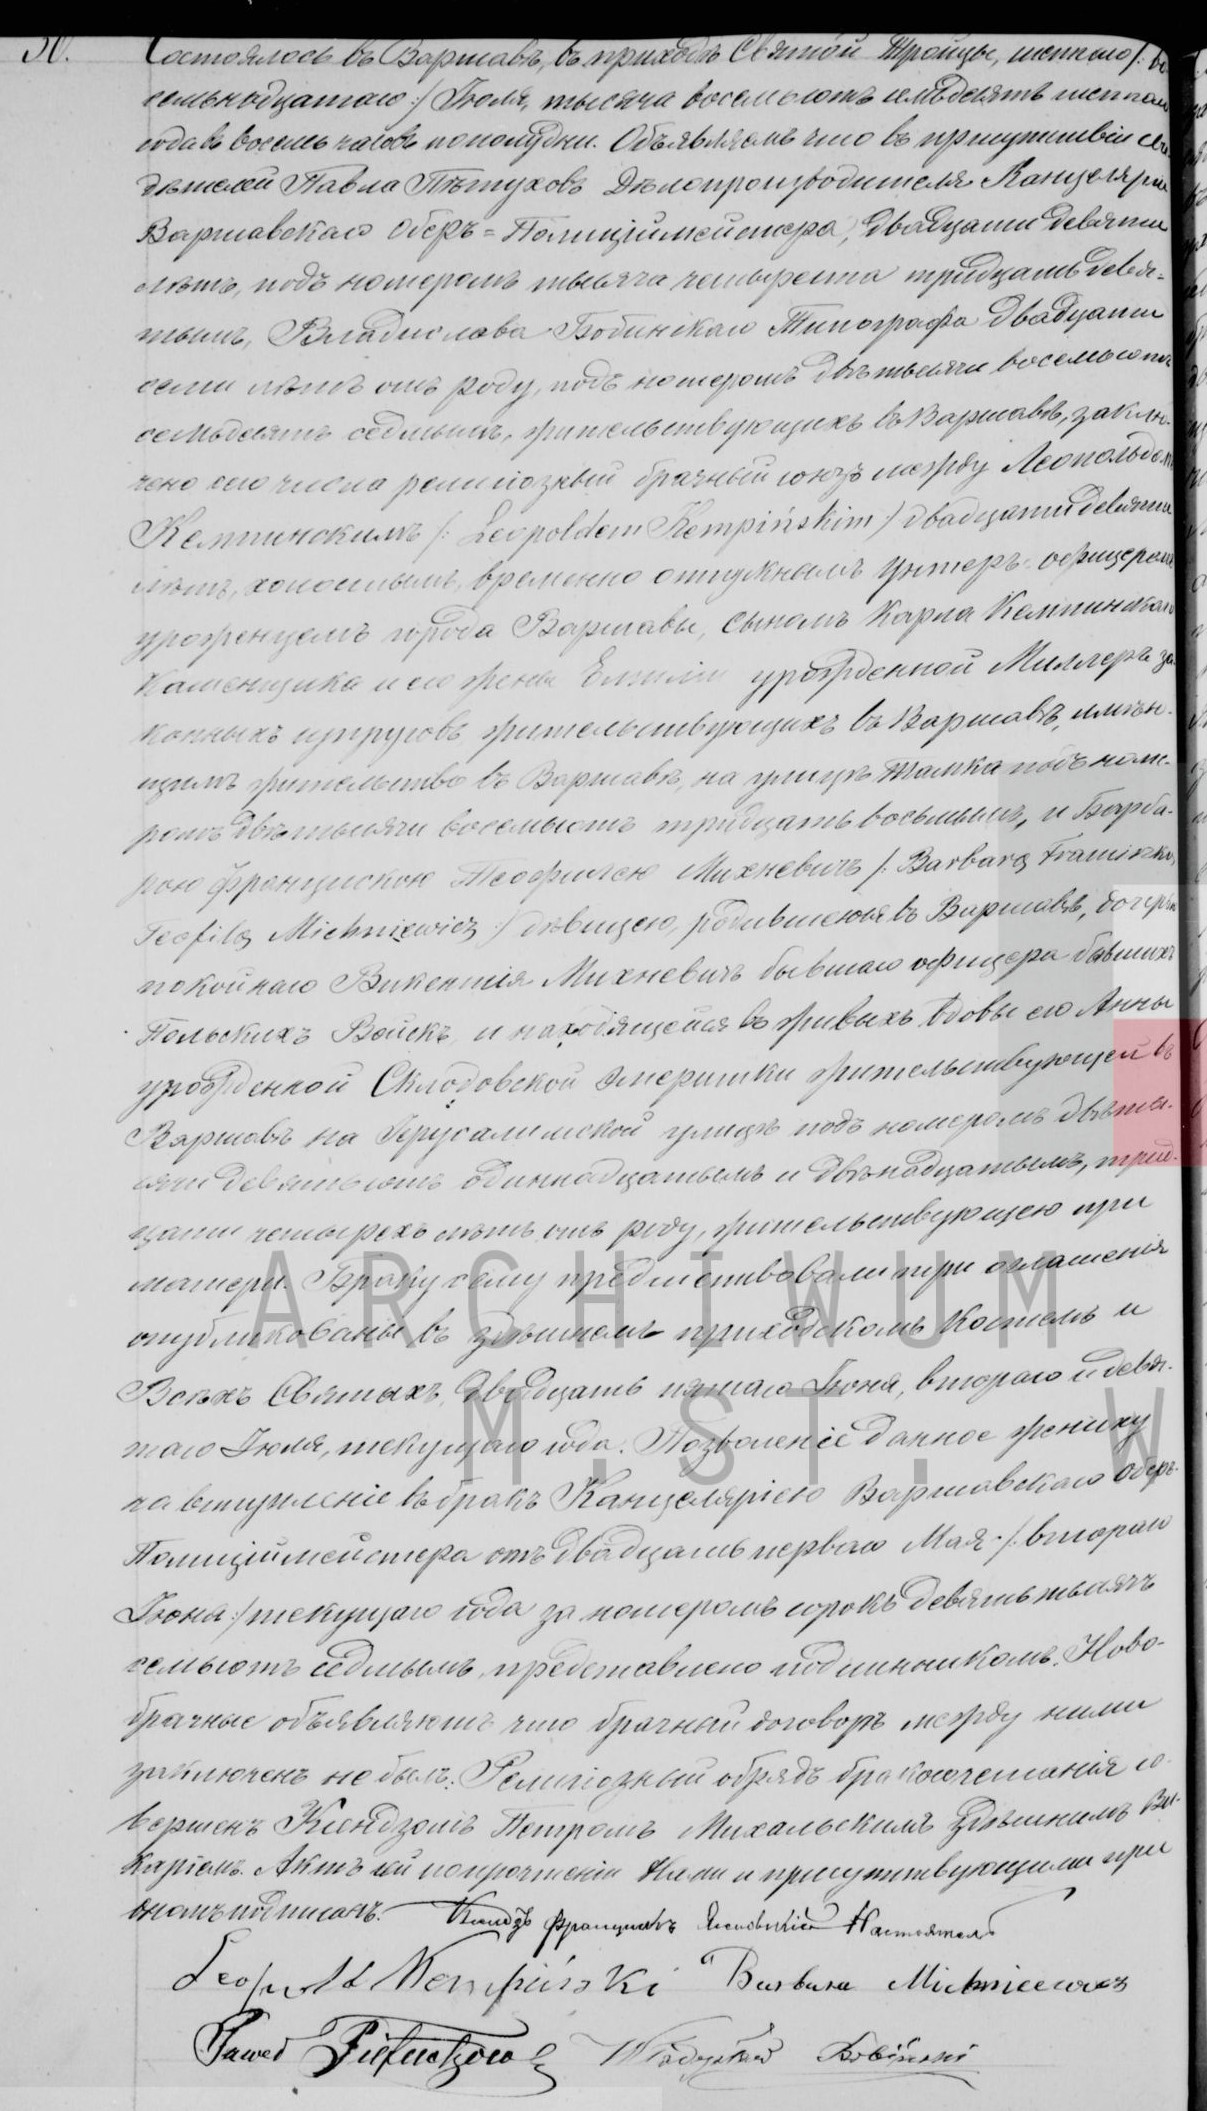 50. Состоялось въ Варшавѣ, въ приходѣ Святой Троицы, шестаго /:
семьнадцатаго:/ Іюля, тысяча восемьсотъ семьдесятъ шестаго
года въ восемь часовъ пополудни. Объявляемъ что въ присутствіи сви-
дѣтелей Павла Пѣтухова Дѣлопроизводителя Канцеляріи
Варшавскаго Оберъ=Полиціймейстера, двадцати девяти
лѣтъ, подъ номеромъ тысяча четыреста тридцать девя=
тымъ, Владислава Бобинскаго Типографа двадцати
семи лѣтъ отъ роду, подъ номеромъ двѣ тысячи восемьсотъ
семьдесятъ седьмымъ, жительствующихъ въ Варшавѣ, заклю-
чено сего числа религіозный брачный союзъ между Леопольдомъ
Кемпинскимъ /: Leopoldem Kempińskim:/ двадцати девяти
лѣтъ, холостымъ, временно отпускнымъ унтеръ-офицеромъ
урожденцемъ города Варшавы, сыномъ Карла Кемпинскаго
Каменщика и его жены Емиліи урожденной Миллеръ за-
конныхъ супруговъ жительствующихъ въ Варшавѣ, имѣю-
щимъ жительство въ Варшавѣ, на улицѣ Тамка подъ номе-
ромъ двѣ тысячи восемьсотъ тридцать восьмымъ, и Барба-
рою Францискою Теофилею Михневичъ /: Barbarą Franciszką
Teofilą Michniewicz:/ дѣвицею, родившеюся въ Варшавѣ, дочерью
покойнаго Викентія Михневичъ бывшаго офицера бывшихъ
Польскихъ Войскъ, и находящейся въ живыхъ вдовы его Анны
урожденной Склодовской емеритки жительствующей въ
Варшавѣ на Іерусалимской улицѣ подъ номеромъ двѣ ты-
сячи девятьсотъ одиннадцатымъ и двѣнадцатымъ, трид-
цати четырехъ лѣтъ отъ роду, жительствующею при
матери. Браку сему предшествовали три оглашенія
опубликованы въ здѣшнемъ приходскомъ Костелѣ и
Всѣхъ Святыхъ, двадцать пятаго Іюня, втораго и девя-
таго Іюля, текущаго года. Позволеніе данное жениху
на вступленіе въ бракъ Канцеляріею Варшавскаго Оберъ-
Полиціймейстера отъ двадцать перваго Мая /: втораго
Іюня:/ текущаго года за номеромъ сорокъ девять тысячъ
семьсотъ седьмымъ, представлено подлинникомъ. Ново-
брачные объявляютъ что брачный договоръ между ними
заключенъ не былъ. Религіозный обрядъ бракосочетанія со-
вершенъ Ксендзомъ Петромъ Михальскимъ здѣшнимъ Ви-
каріемъ. Актъ сей по прочтеніи Нами и присутствующими при
ономъ подписанъ. Ксендзъ Францискъ Настоятель
Leopold Kempiński Barbara Michniewicz
Paweł Pietuchow Władysław Bobiński
ARCHIWUM
M. ST. W